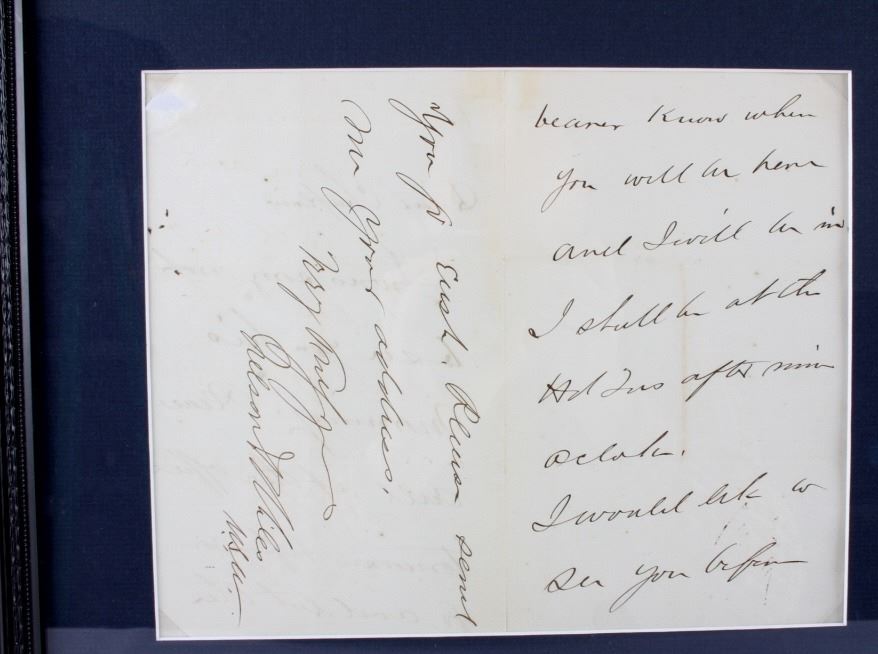 bearer know when
you will be here
and I will be in
I shall be at the
Hd Qrs after nine
oclock.
I would like to
see you before
You go East. Please send
me your address.
Very truly yours
Nelson A Miles
U.S.A.